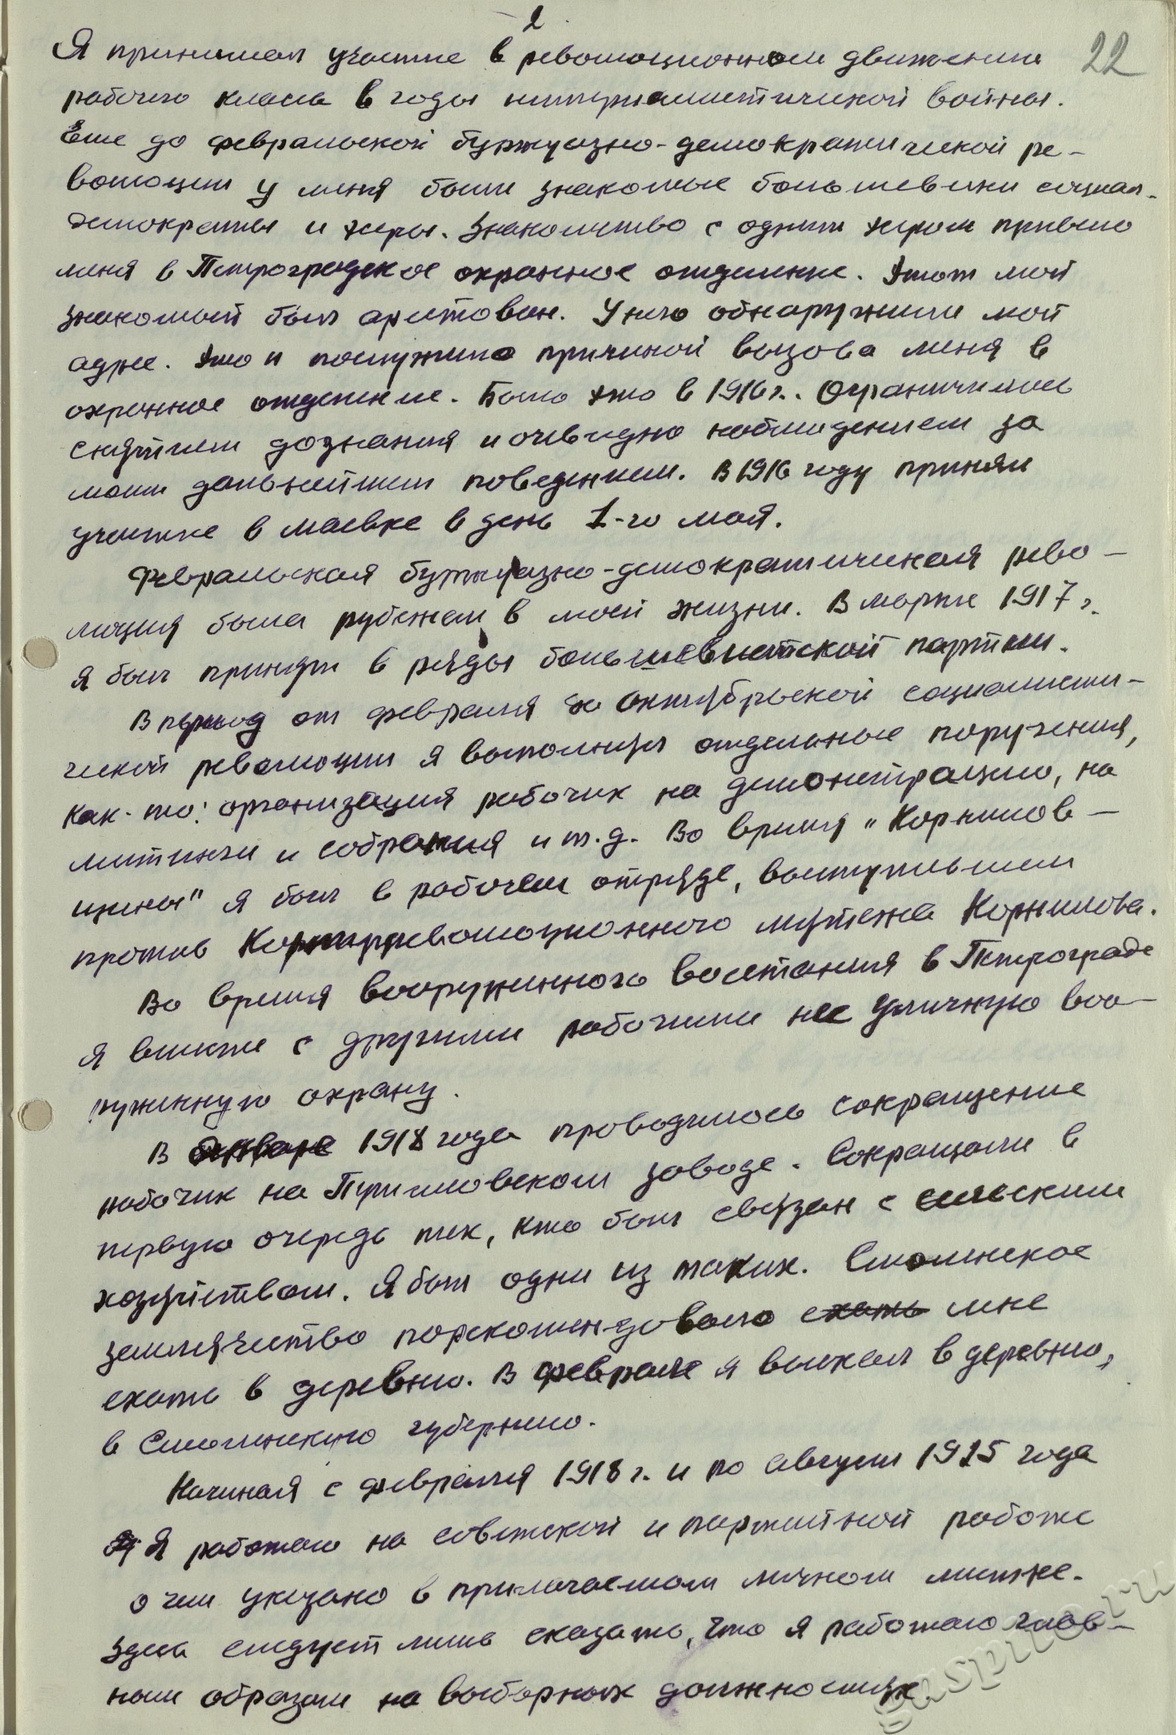 2
22
Я принимал участие в революционном движении
рабочего класса в годы империалистической войны.
Еще до февральской буржуазно-демократической ре-
волюции у меня были знакомые большевики социал-
демократы и эсеры. Знакомство с одним эсером привело
меня в Петроградское охранное отделение. Этот мой
знакомый был арестован. У него обнаружили мой
адрес. Это и послужило причиной вызова меня в
охранное отделение. Было это в 1916 г.. Ограничились
снятием дознания и очевидно наблюдением за
моим дальнейшим поведением. В 1916 году принял
участие в маевке в день 1-го мая.
Февральская буржуазно-демократическая рево-
люция была рубежом в моей жизни. В марте 1917 г.
я был принят в ряды большевистской партии.
В период от февраля до октябрьской социалисти-
ческой революции я выполнял отдельные поручения,
как-то: организация рабочих на демонстрацию, на
митинги и собрания и т.д. Во время "Корнилов-
щины" я был в рабочем отряде, выступившем
против Контрреволюционного мятежа Корнилова.
Во время вооруженного восстания в Петрограде
я вместе с другими рабочими нес уличную воо-
руженную охрану.
В январе 1918 года проводилось сокращение
рабочих на Путиловском заводе. Сокращали в
первую очередь тех, кто был связан с сельским
хозяйством. Я был один из таких. Смоленское
землячество порекомендовало ехать мне
ехать в деревню. В феврале я выехал в деревню,
в Смоленскую губернию.
Начиная с февраля 1918 г. и по август 1925 года
Я работаю на советской и партийной работе
о чем указано в прилагаемом личном листке.
Здесь следует лишь сказать, что я работаю глав-
ным образом на выборных должностях
gaspito.ru